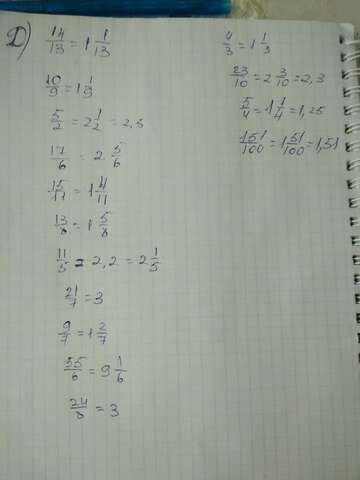 D) 14/13 = 1 1/13
10/9 = 1 1/9
5/2 = 2 1/2 = 2,5
17/6 = 2 5/6
15/11 = 1 4/11
13/8 = 1 5/8
11/5 = 2,2 = 2 1/5
21/7 = 3
9/7 = 1 2/7
55/6 = 9 1/6
24/8 = 3
4/3 = 1 1/3
23/10 = 2 3/10 = 2,3
5/4 = 1 1/4 = 1,25
151/100 = 1 51/100 = 1,51